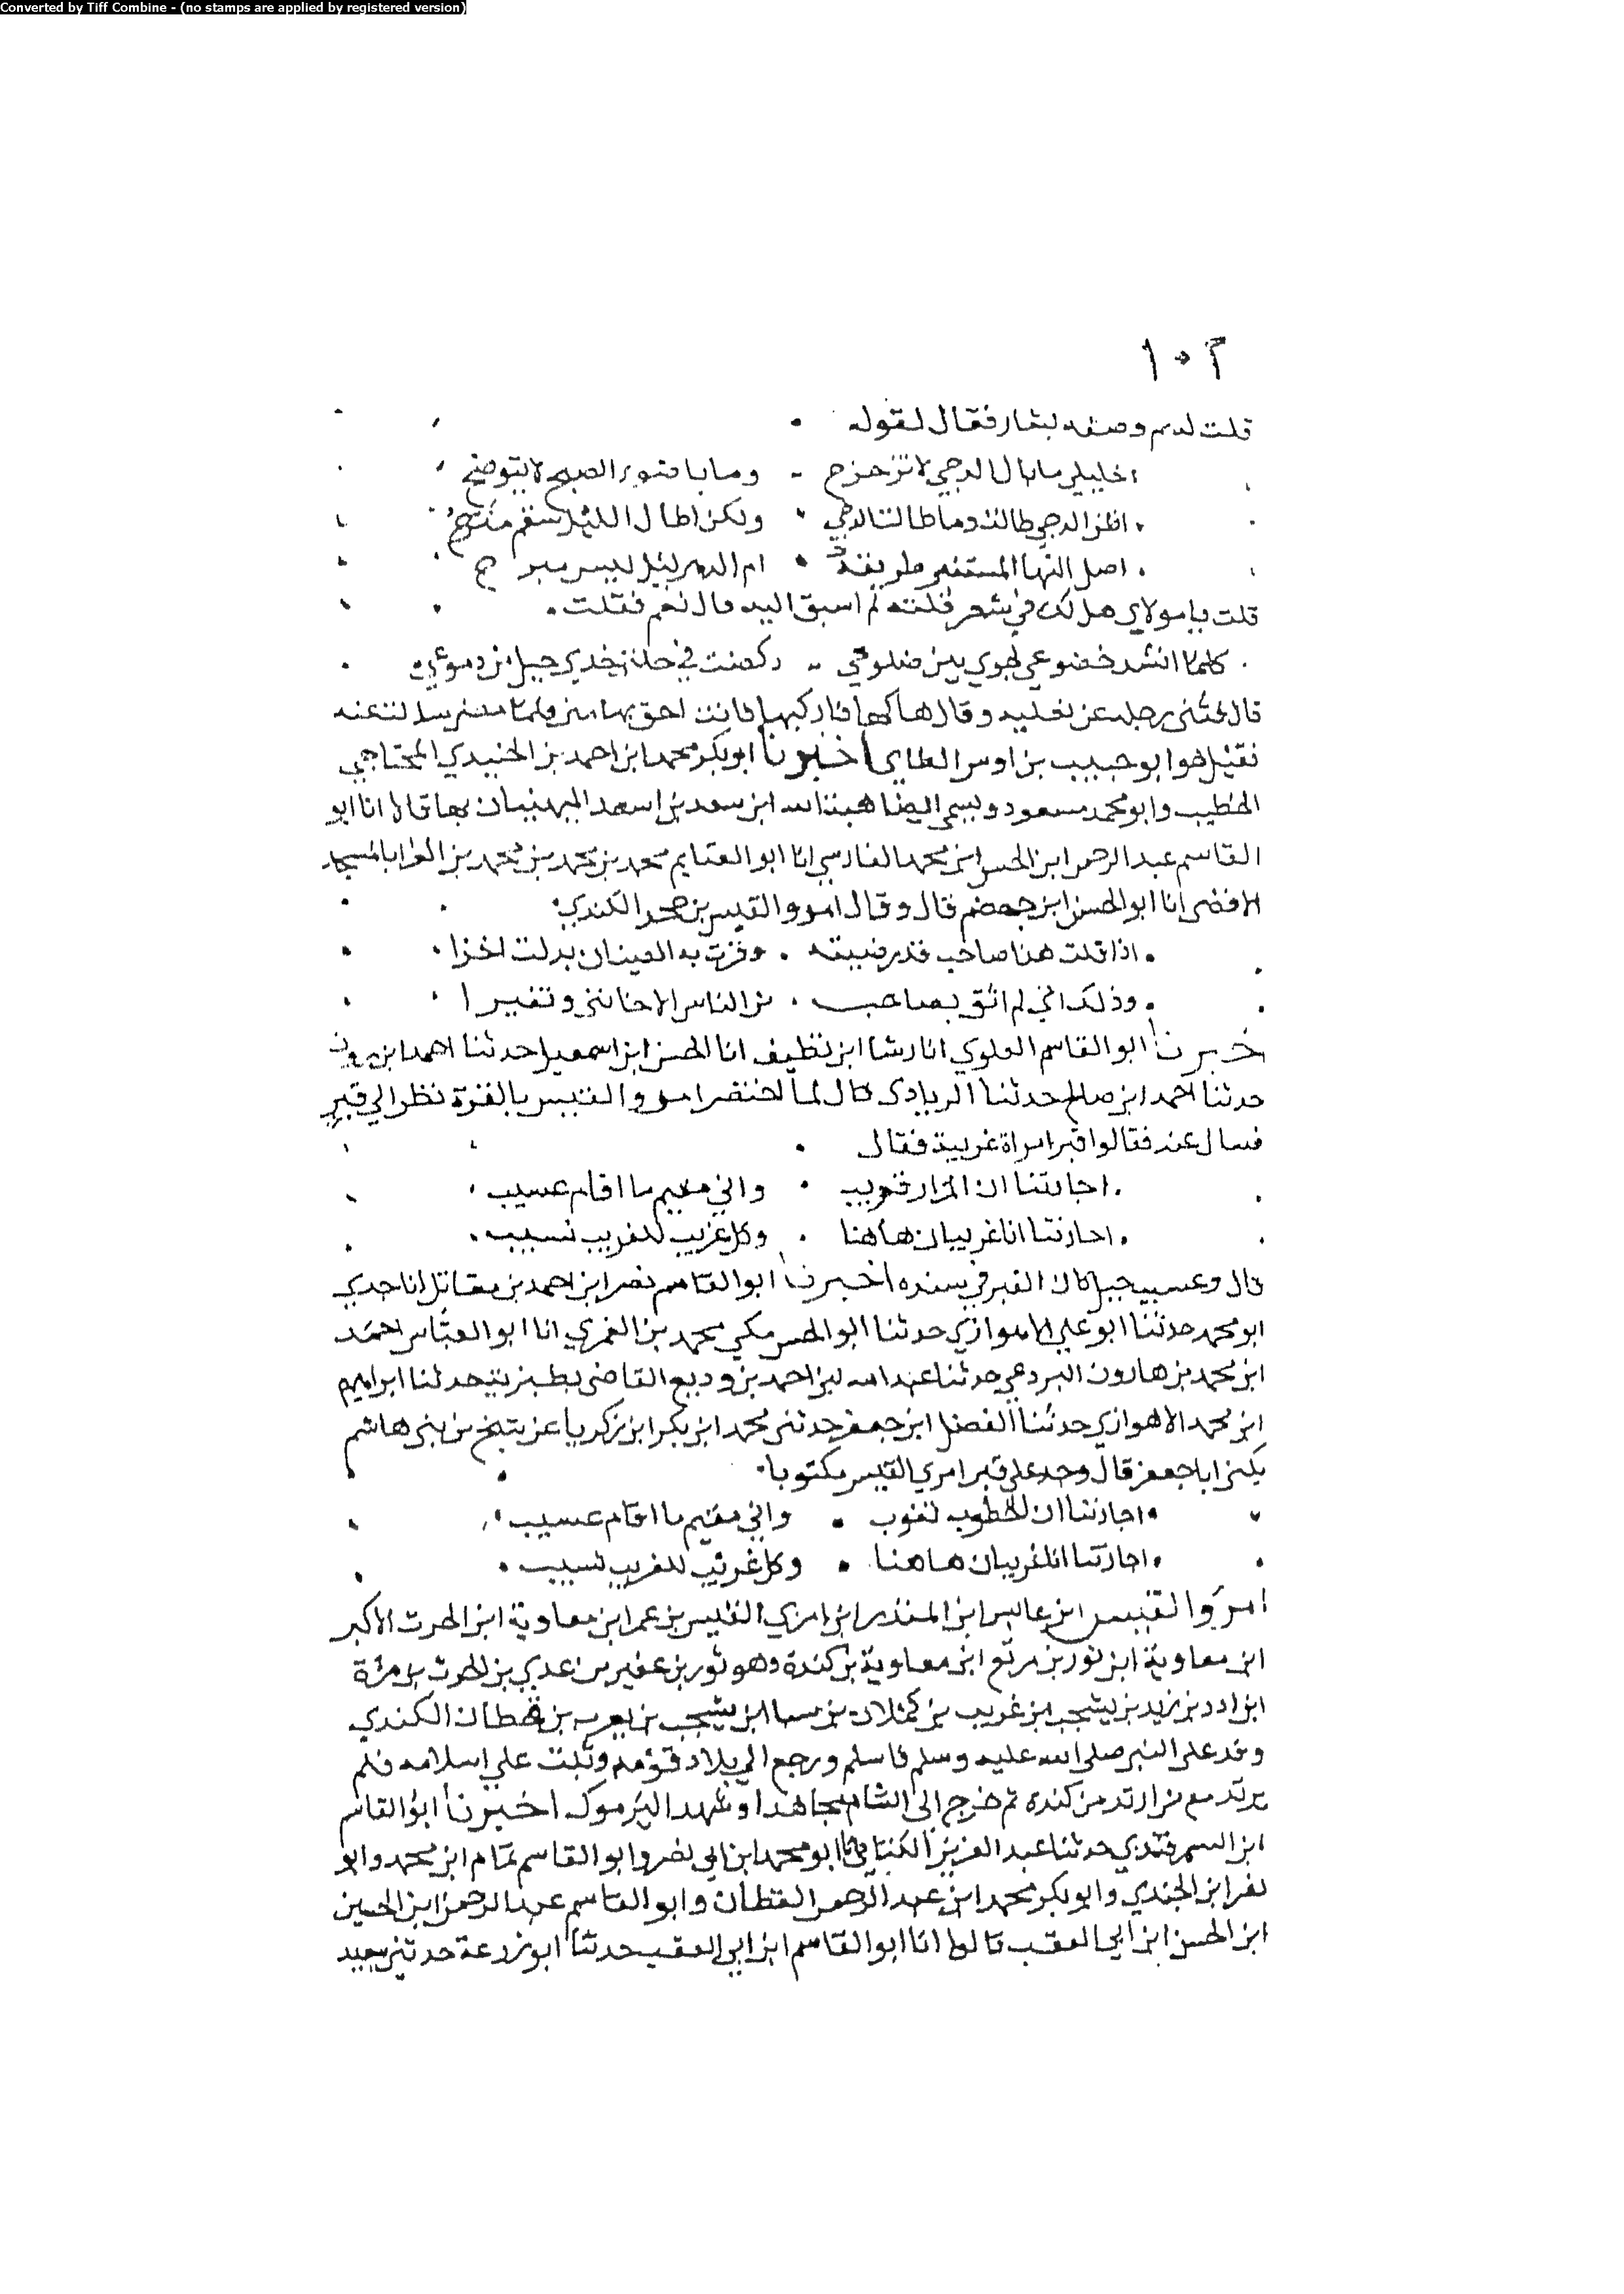 Converted by Tiff Combine - (no stamps are applied by registered version)
١٠٢
قلت له بم وصفه بشار فقال لقوله
خليلي ما بال الدجي لا تزحزح وما با ضوء الصبح لا يتوضح
اظن الدجي طالت وما طالت الدجي ولكن اطال الليل سقم مبرح
اضل النها المستنير طريقه ام الدهر ليل ليس يبرح
قلت يا مولاي هل لك في شعر قلته لم اسبق اليه قال نعم فقلت
كلما انشد خضوعي لهوي بين ضلوعي ركضت في حلبة خدي خيل من دموعي
قال فثني رجله عن بغليه وقال هاكها فاركبها فانت احق بها مني فلما مضى سالت عنه
فقيل هو ابو حبيب بن اوس الطاي اخبرنا ابو بكر محمد ابن احمد بن الجنيدي
الخطيب وابو محمد مسعود ويسمى ايضا هبة الله ابن سعد بن اسعد الميهنيان بها قالا انا ابو
القاسم عبد الرحمن ابن الحسن ابن محمد الفارسي انا ابو الغنايم محمد بن محمد بن محمد بن الفرا بالمسجد
الاقصى انا ابو الحسن ابن جهضم قال وقال امرو القيس بن حجر الكندي
اذا قلت هذا صاحب قد رضيته وقرت به العينان بدلت اخرا
وذلك اني لم اثق بصاحب من الناس الا خانني وتغيرا
خبرنا ابو القاسم العلوي انا رشا ابن نظيف انا الحسن ابن اسمعيل حدثنا احمد ابن مروان
حدثنا احمد ابن صالح حدثنا الزيادي قال لما احتضر امرو القيس بانقرة نظر الي قبر
فسال عنه فقالوا قبر امراة غريبة فقال
اجارتنا ان المزار قريب واني مقيم ما اقام عسيب
اجارتنا انا غريبان هاهنا وكل غريب للغريب نسيب
قال وعسيب جبل كان القبر في سنده اخبرنا ابو القاسم نصر ابن احمد بن مقاتل انا جدي
ابو محمد حدثنا ابو علي الاهوازي حدثنا ابو الحسن مكي محمد بن الغمري انا ابو العباس احمد
ابن محمد بن هارون البردعي حدثنا عبد الله ابن احمد بن وديع القاضي بطبرية حدثنا ابراهيم
ابن محمد الاهوازي حدثنا الفضل ابن جعفر حدثني محمد ابن بكر ابن زكريا عن شيخ من بني هاشم
يكنى ابا جعفر قال وجد علي قبر امري القيس مكتوبا
اجارتنا ان الخطوب تنوب واني مقيم ما اقام عسيب
اجارتنا انا غريبان هاهنا وكل غريب للغريب نسيب
امرؤ القيس ابن عابس ابن المنذر ابن امري القيس بن عمر ابن معاوية ابن الحرث الاكبر
ابن معاوية ابن ثور بن مرتع ابن معاوية بن كندة وهو ثور بن عفير بن عدي بن الحرث بن مرة
ابن ادد بن زيد بن يشجب بن غريب بن كهلان بن سبا ابن يشجب بن يعرب بن قحطان الكندي
وفد على النبي صلى الله عليه وسلم فاسلم ورجع الي بلاد قومه وثبت علي اسلامه فلم
يرتد مع من ارتد من كنده ثم خرج الى الشام مجاهدا وشهد اليرموك اخبرنا ابو القاسم
ابن السمرقندي حدثنا عبد العزيز الكتاني انا ابو محمد ابن ابي نصر وابو القاسم تمام ابن محمد وابو
نصر ابن الجندي وابو بكر محمد ابن عبد الرحمن القطان وابو القاسم عبد الرحمن ابن الحسين
ابن الحسن ابن ابي العقب قالوا انا ابو القاسم ابن ابي العقب حدثنا ابو زرعة حدثني سعيد